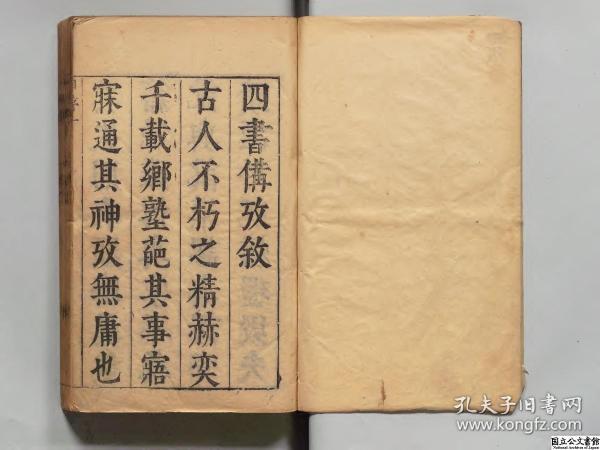 四書備攷敘
古人不朽之精赫奕
千載鄉塾葩其事寤
寐通其神攷無庸也
孔夫子旧书网
www.kongfz.com
国立公文書館
National Archives of Japan